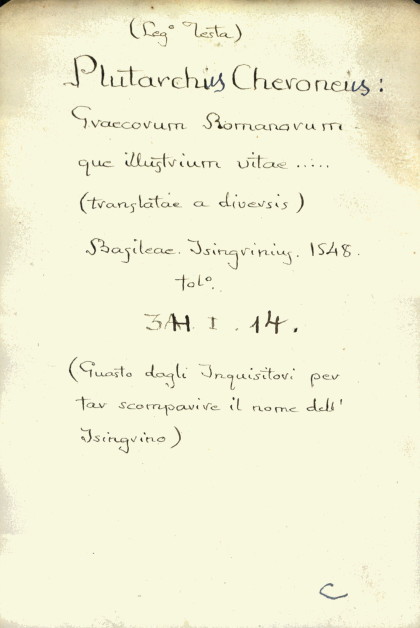 (Leg° Testa)
Plutarchius Cheroneius:
Graecorum Romanorum
que illustrium vitae .....
(translatae a diversis)
Basileae. Isingrinius. 1548.
fol°.
3 AH I . 14.
(Guasto dagli Inquisitori per
far scomparire il nome dell'
Isingrino)
C